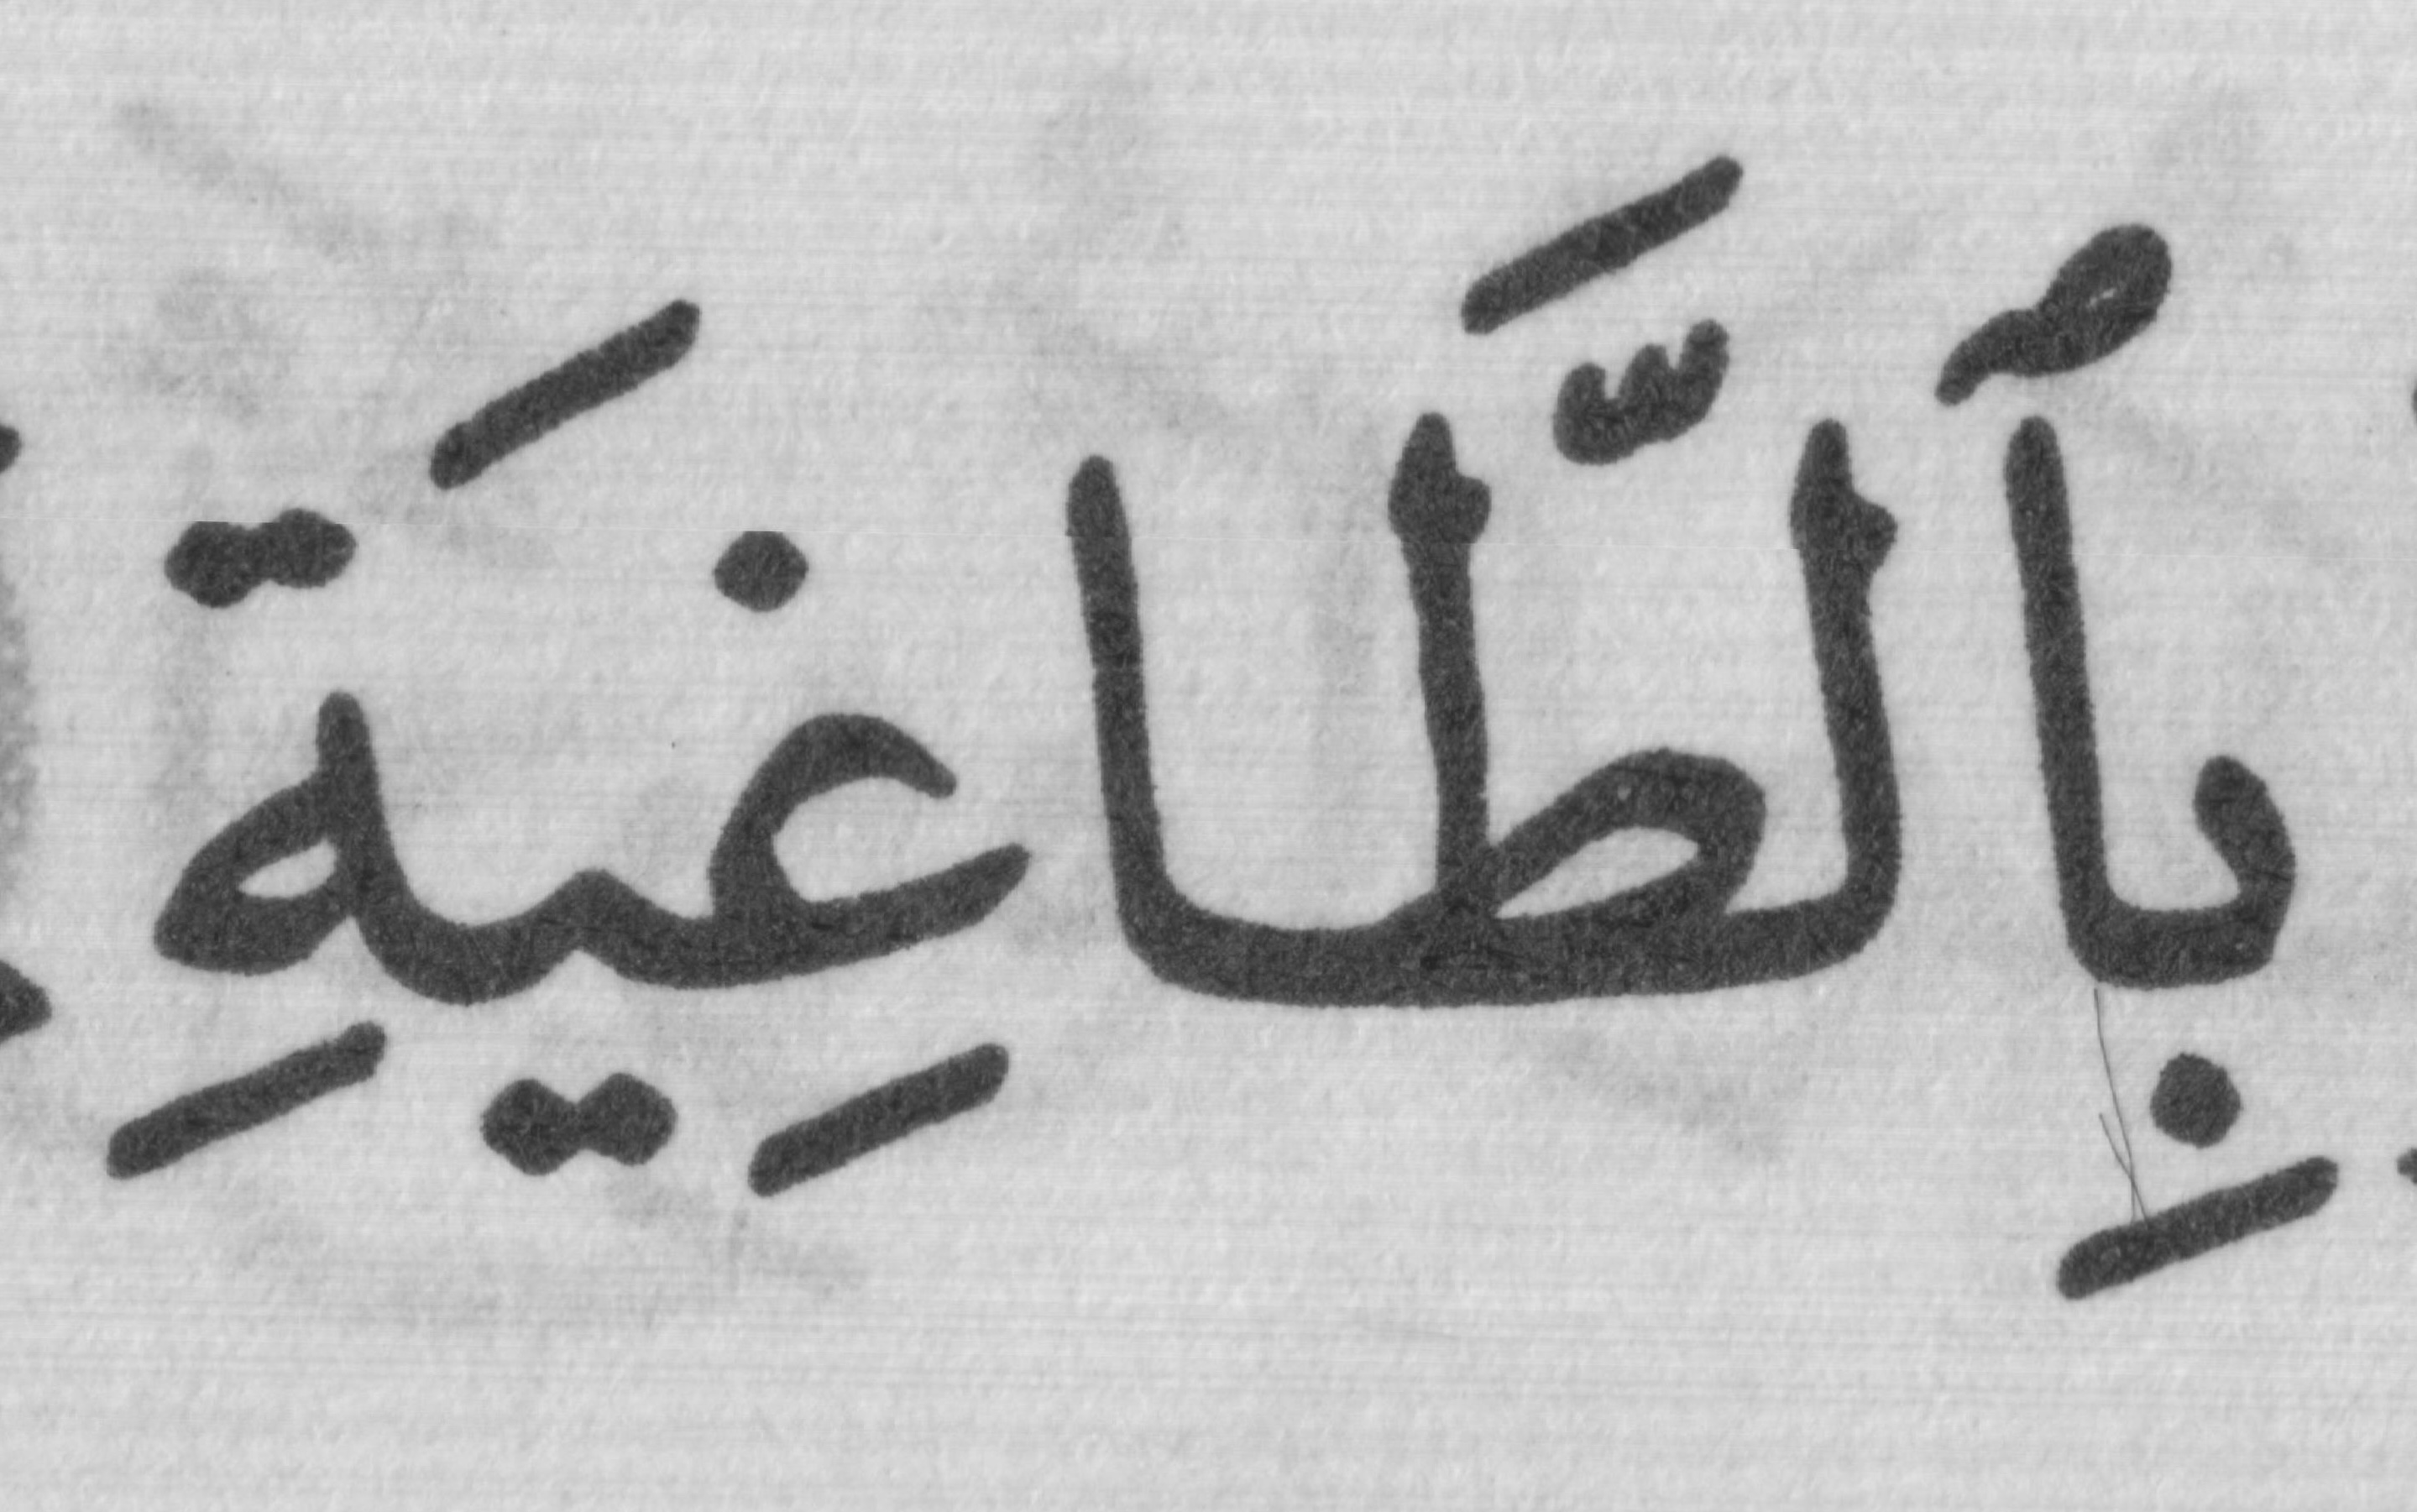 بِٱلطَّاغِيَةِ